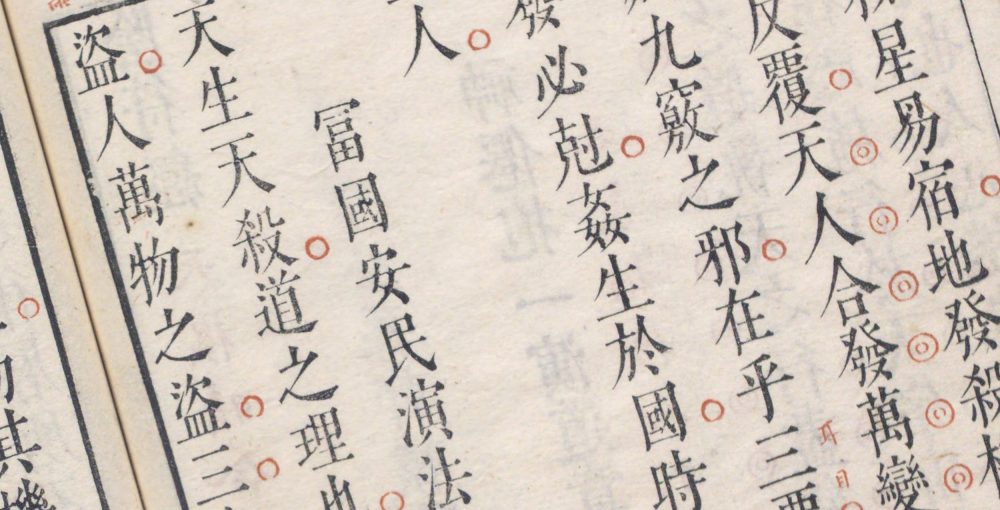 星易宿地發殺
反覆天人合發萬變
九竅之邪在乎三要
耳目
發必尅姦生於國時
人
冨國安民演法
天生天殺道之理也
盜人萬物之盜三
其機